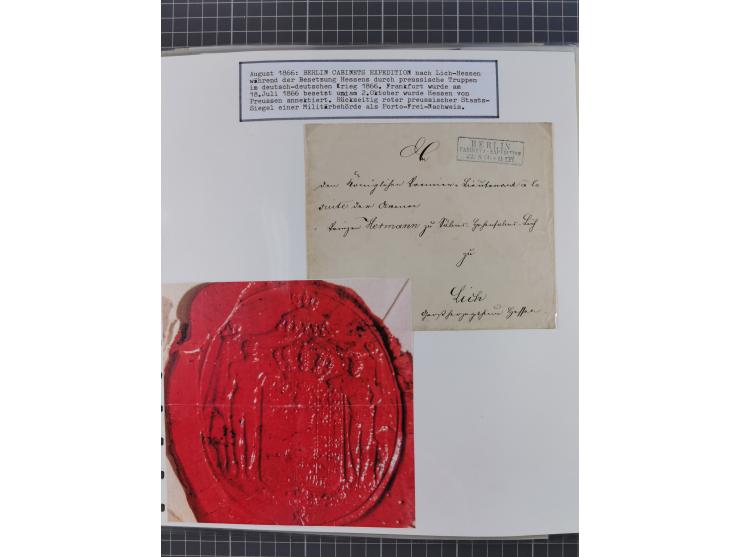 August 1866: BERLIN CABINETS EXPEDITION nach Lich-Hessen
während der Besetzung Hessens durch preussische Truppen
im deutsch-deutschen Krieg 1866. Frankfurt wurde am
18.Juli 1866 besetzt und am 2.Oktober wurde Hessen von
Preussen annektiert. Rückseitig roter preussischer Staats-
Siegel einer Militärbehörde als Porto-Frei-Nachweis.
BERLIN
CABINETS-EXPEDITION
An
den Königlichen Premier-Lieutenant à la
suite der Armee
Prinzen Hermann zu Solms-Hohensolms-Lich
zu
Lich
Großherzogthum Hessen